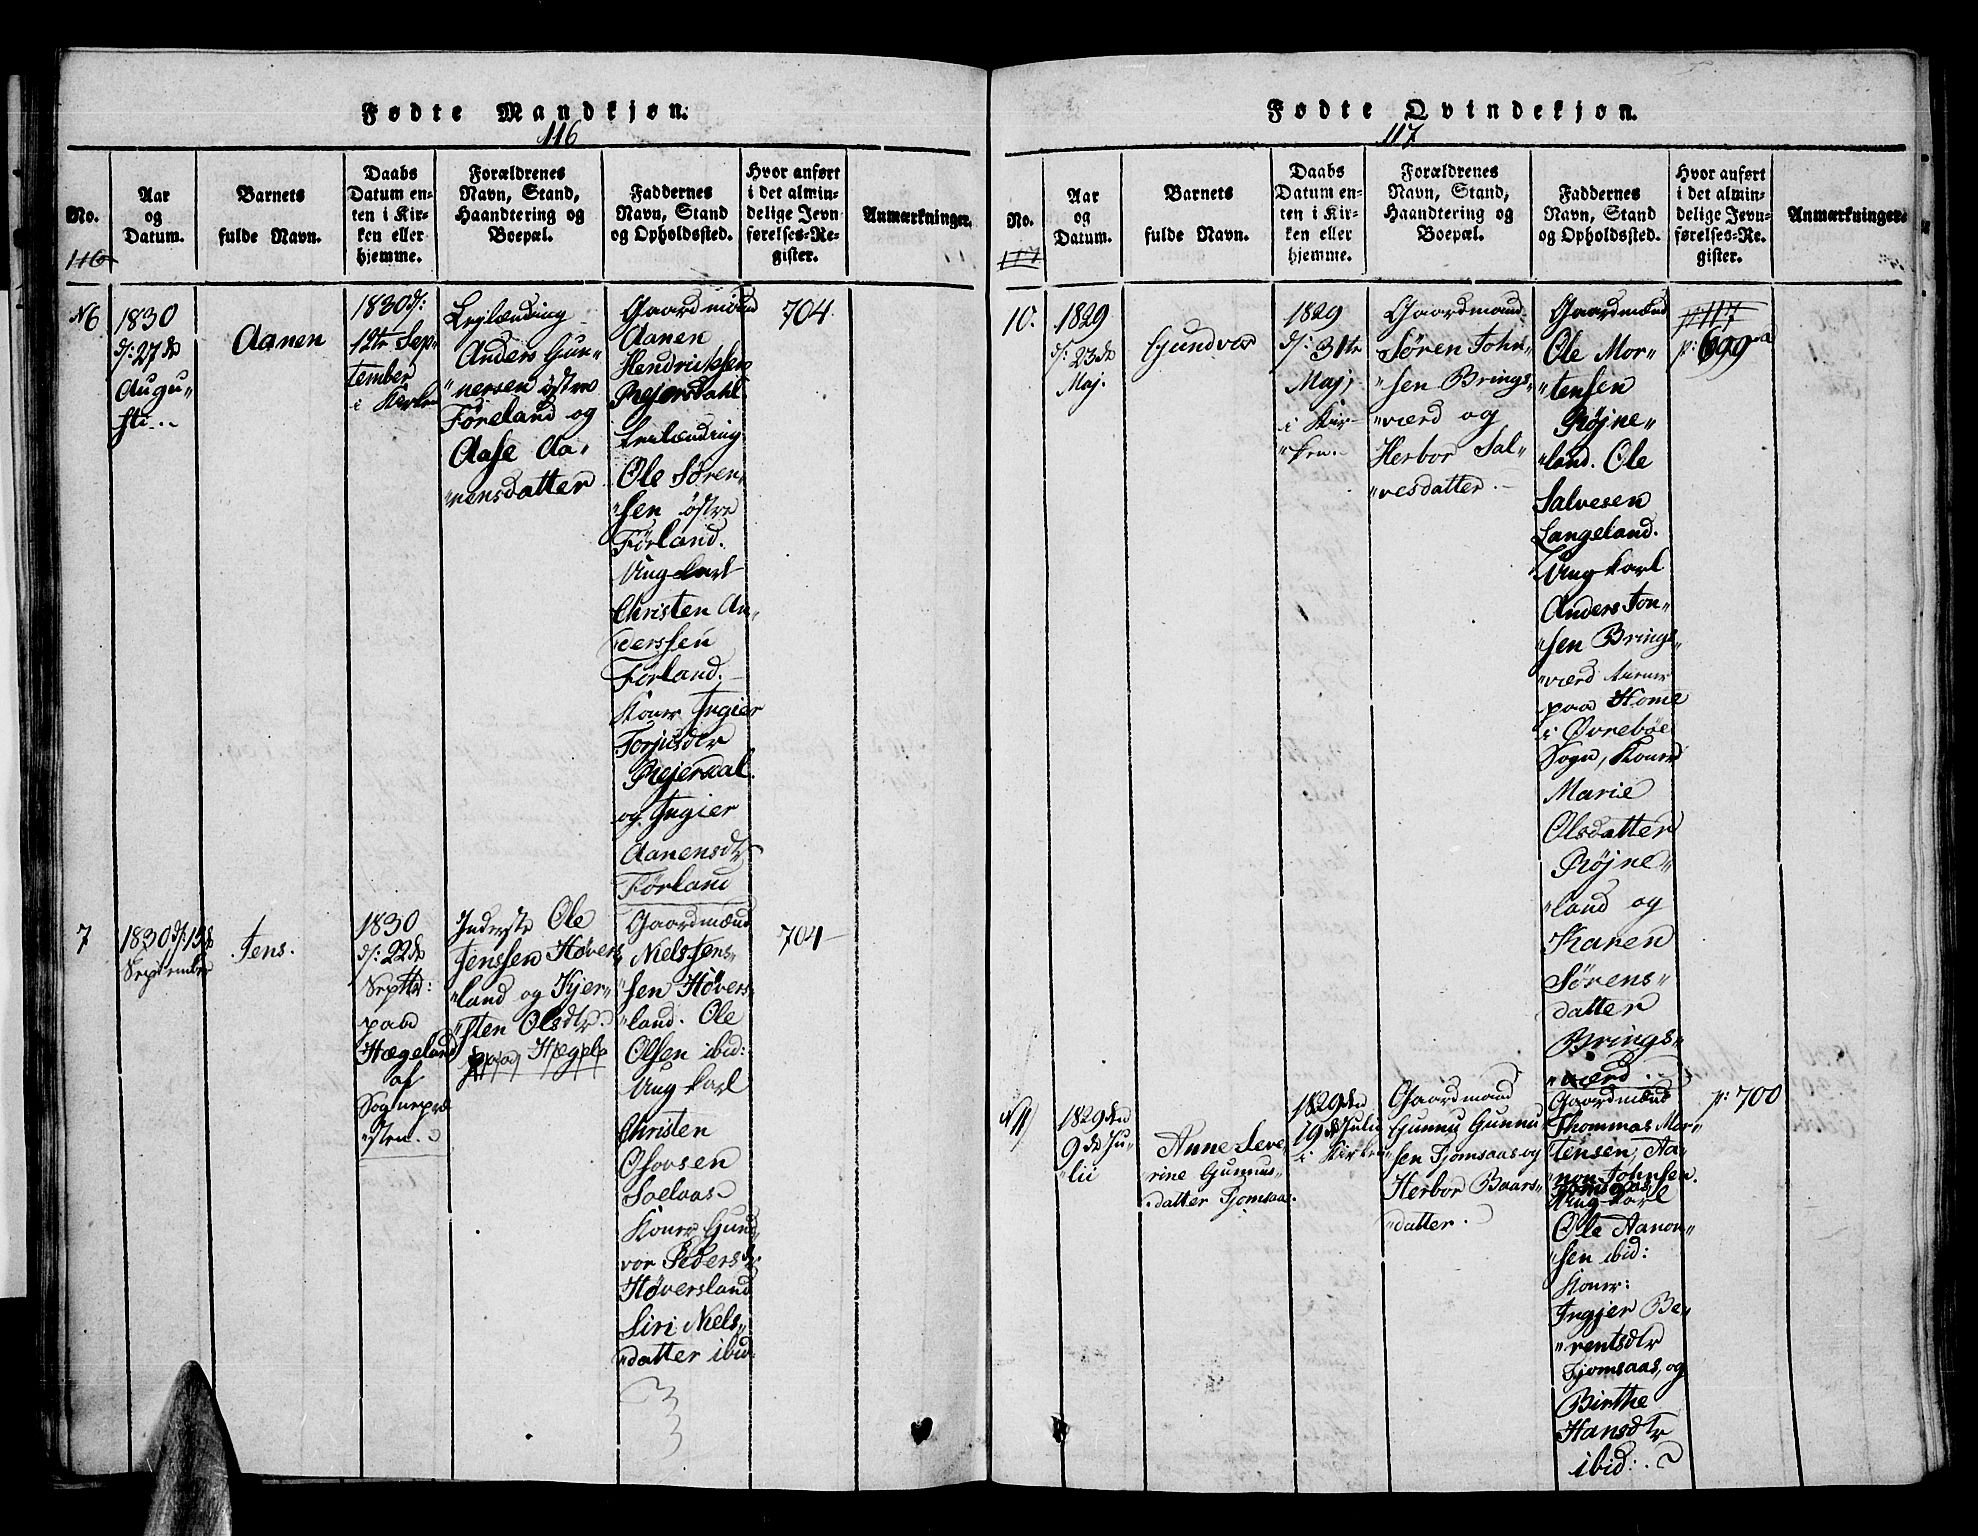 Fødte Mandkjøn.
116
No.
116
Aar
og
Datum.
Barnets
fulde Navn.
Daabs
Datum en-
ten i Kir-
ken eller
hjemme.
Forældrenes
Navn, Stand,
Haandtering og
Boepæl.
Faddernes
Navn, Stand
og Opholdssted.
Hvor anført
i det almin-
delige Jevn-
førelses-Re-
gister.
Anmærkninger.
N6
1830
d: 27de
Augu-
sti.
Aanen
1830 d:
12te Sep-
tember
i Kirken
Leilænding
Anders Gun-
nersen østre
Føreland og
Aase Aa-
nensdatter
Gaardmænd
Aanen
Hendrikssen
Reiersdahl.
Leilænding
Ole Søren-
sen østre
Førland.
Ungkarl
Christen An-
derssen
Førland.
Koner Ingier
Torjusdtr
Reiersdal.
og Ingier
Aanensdtr
Førland
704
7
1830 d: 15de
September
Jens.
1830
d: 22de
Septbr:
paa
Hægeland
af
Sognepræ-
sten.
Inderste Ole
Jenssen Høvers-
land og Kjer-
sten Olsdtr.
Gaardmænd
Niels Jens-
sen Høvers-
land. Ole
Olsen ibid:
Ung karl
Christen
Osovsen
Soelaas
Koner Gund-
vor Pedersdtr
Høversland
Siri Niels-
datter ibid.
704
Fødte Qvindekjøn.
117
No.
117
Aar
og
Datum.
Barnets
fulde Navn.
Daabs
Datum en-
ten i Kir-
ken eller
hjemme.
Forældrenes
Navn, Stand,
Haandtering og
Boepæl.
Faddernes
Navn, Stand
og Opholdssted.
Hvor anført
i det almin-
delige Jevn-
førelses-Re-
gister.
Anmærkninger.
10.
1829
d: 23de
Maj.
Gundvor
1829
d: 31te
Maj,
i Kir-
ken.
Gaardmand
Søren John-
sen Brings-
værd og
Herbor Sal-
vesdatter.
Gaardmænd
Ole Mor-
tensen
Røjne-
land. Ole
Salvesen
Langeland.
Ung karl
Anders Jon-
sen Brings-
værd
paa Home
i Øvrebøe
Sogn, Koner
Marie
Olsdatter
Røjne-
land og
Karen
Sørens-
datter
Brings-
værd.
p: 117
p: 699
N 11
1829 den
9de Ju-
lii
Anne Seve-
rine Gunnus-
datter Fjomsaas.
1829 den
19de Julii
i Kirken
Gaardmand
Gunnu Gunnu-
sen Fjomsaas og
Herbor Baars-
datter.
Gaardmænd
Thommas Mor-
tensen, Aa-
non Johnsen.
Fjomsaas
Ung karl
Ole Aanon-
sen ibid:
Koner:
Ingjer Be-
rentsdtr
Fjomsaas, og
Birthe
Hansdtr
ibid:
p: 700